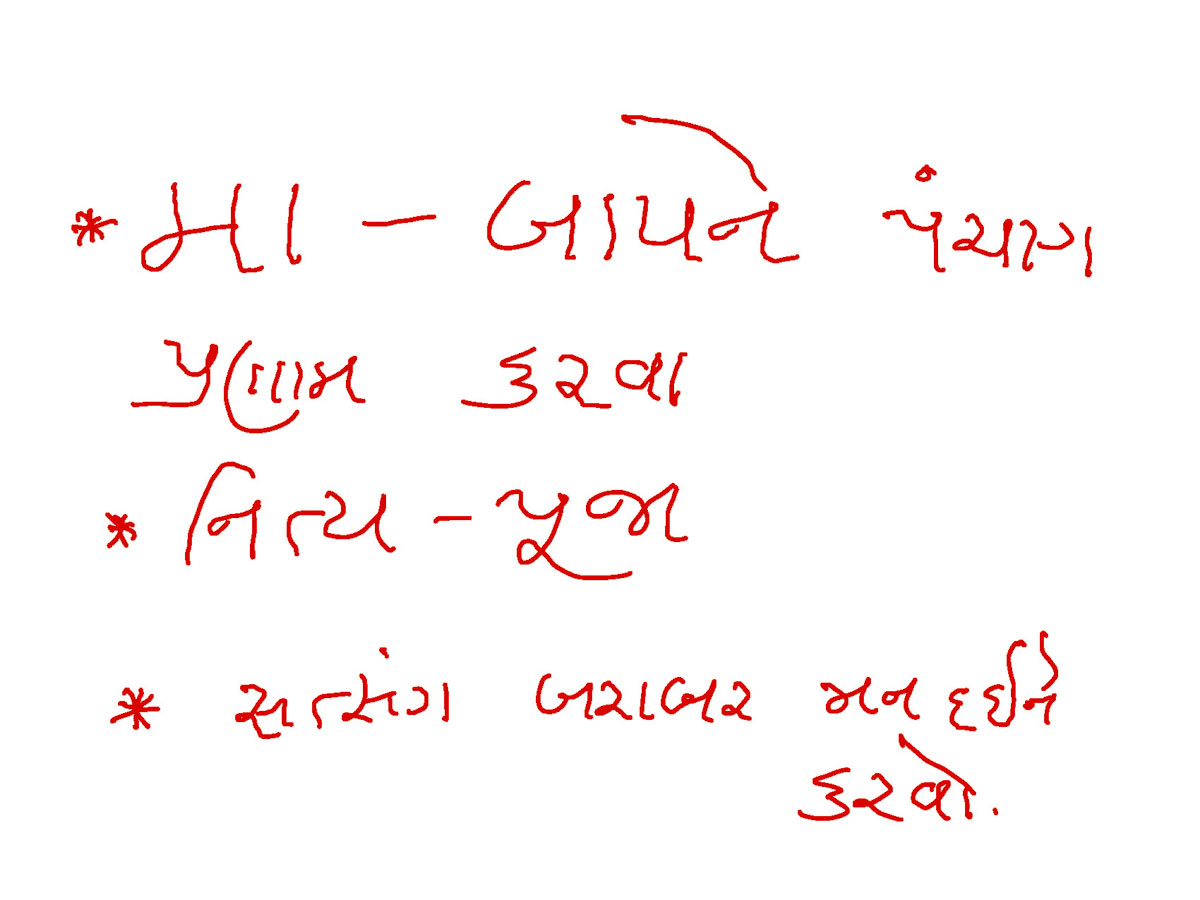 * મા - બાપને પંચાગ
પ્રણામ કરવા
* નિત્ય - પૂજા
* સત્સંગ બરાબર મન દઈને
કરવો.